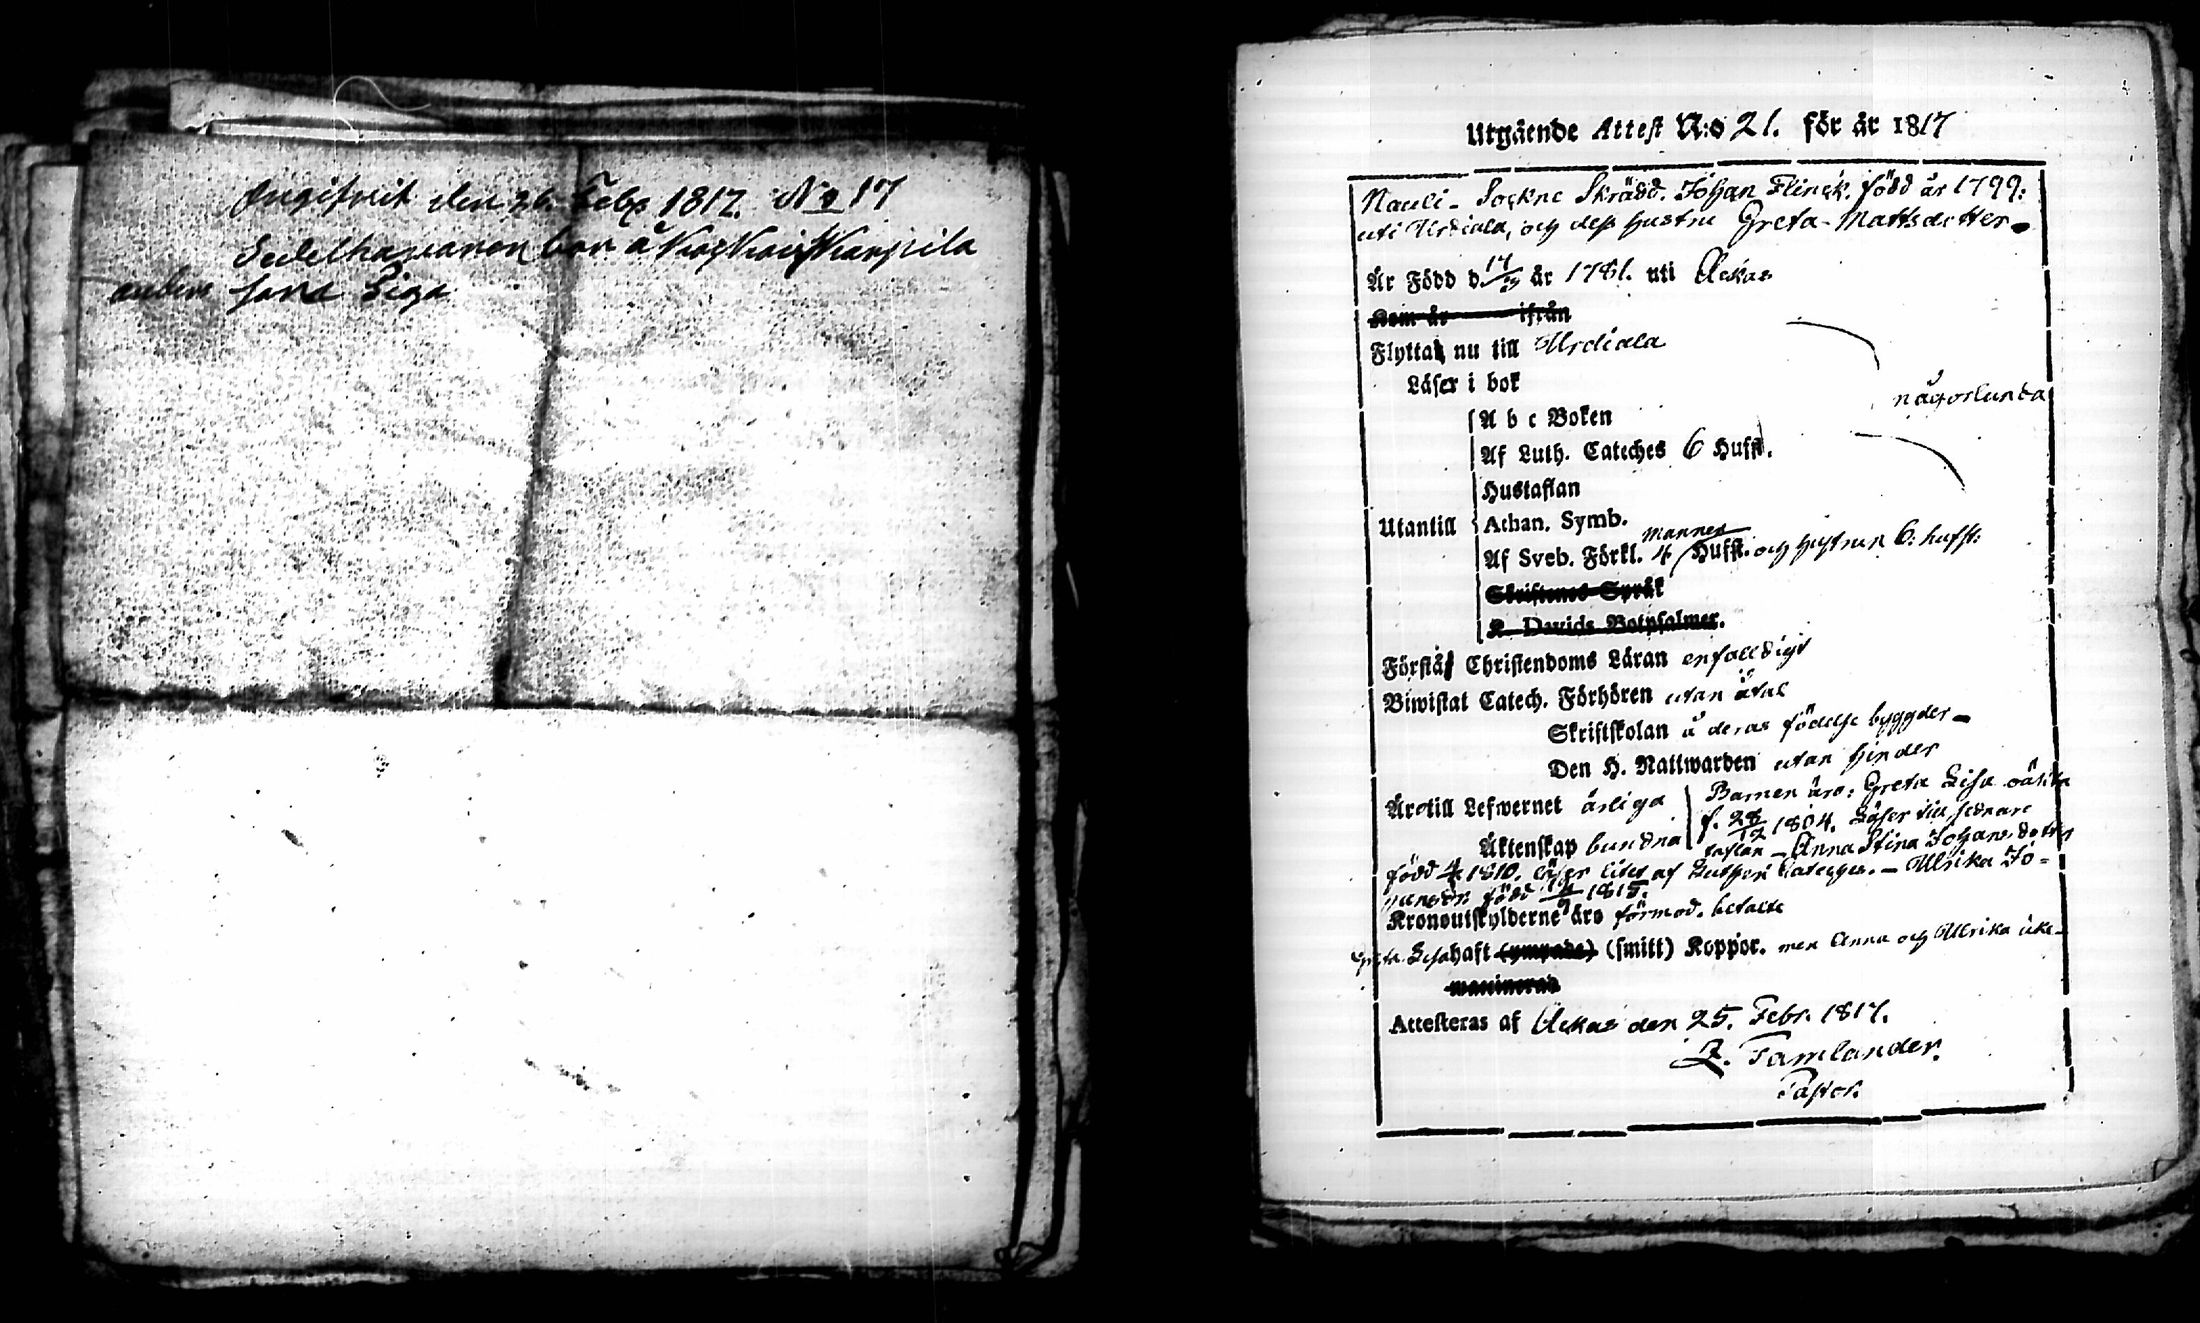 Angifvit den 26. Febr 1817. No 17
Sedelhafvaren bor å
anders Piga
Utgående Attest N:o 21. för år 1817
Nauli - Sockne Skrädd. Johan Flinck. född år 1799:
uti Urdiala, och dess hustru Greta Mattsdotter
Är Född d. 17/3 år 1781. uti Ackas
Kom år ifrån
Flytta nu till Urdiala
Läser i bok
någorlunda
A b c Boken
Af Luth. Cateches 6 Hufst.
Hustaflan
Utantill Athan. Symb.
mannen
Af Sveb. Förkl. 4 Hufst. och hustrun 6: hufst:
Skriftenes Språk
K. Davids Botpsalmer.
Förstå Christendoms Läran enfalldigt
Biwistat Catech. Förhören utan åtal
Skriftskolan å deras födelse bygder
Den H. Nattwarden utan hinder
Äro till Lefwernet ärliga Barnen äro: Greta Lisa oäkta
f. 28/12 1804. Läser till sednare
Äktenskap bundna taflan - Anna Stina Johansdotter
född 1810. läser litet af Luthers Cateches. - Ulrika Jo=
hansdr. född 1815.
Kronoutskylderne äro förmod. betalte
Greta Lisa haft (ympade) (smitt) Koppor. men Anna och Ulrika icke
waccinerad
Attesteras af Ackas den 25. Febr. 1817.
Z. Tamlander.
Pastor.